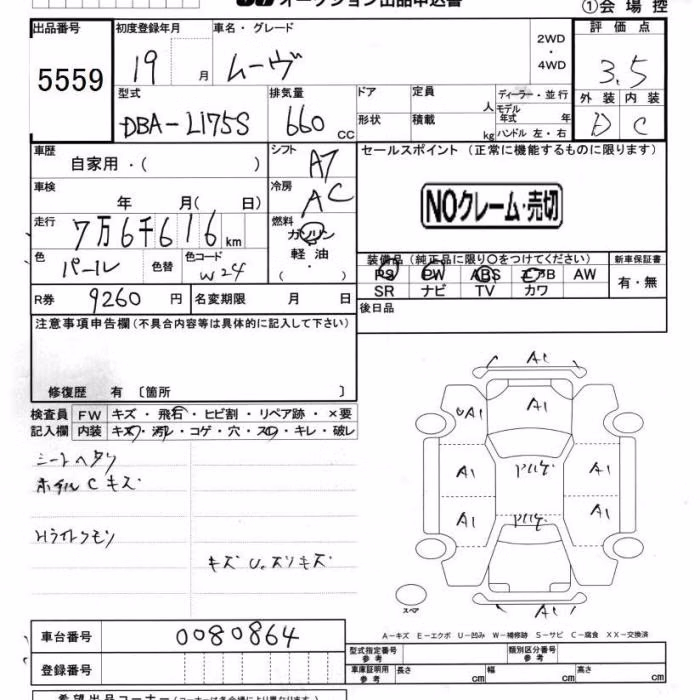 オークション出品申込書
①会場控
出品番号 初度登録年月 車名・グレード 2WD・4WD 評価点
5559 19 月 ムーヴ 3.5
型式 排気量 ドア 定員 人 ディーラー・並行 外装 内装
DBA-L175S 660 cc 形状 積載 kg モデル年式 年 ハンドル 左・右 D C
車歴 シフト AT セールスポイント (正常に機能するものに限ります)
自家用・( )
車検 冷房 AC NOクレーム・売切
年 月( 日)
走行 燃料
7万6千616km ガソリン
色 色替 色コード 軽油 装備品 (純正品に限り○をつけてください) 新車保証書
パール W24 ( ) PS PW ABS エアB AW 有・無
SR ナビ TV カワ
R券 9260円 名変期限 月 日 後日品
注意事項申告欄(不具合内容等は具体的に記入して下さい)
修復歴 有 〔箇所 〕
検査員 FW キズ・飛石・ヒビ割・リペア跡・×要
記入欄 内装 キズ・汚レ・コゲ・穴・スレ・キレ・破レ
シートヘタリ
ホイルCキズ
Hライトクモリ
キズ U.スリキズ
A1
A1
UA1
A1
A1
A1
A1
A1
A1
スペア
A-キズ E-エクボ U-凹み W-補修跡 S-サビ C-腐食 XX-交換済
車台番号 0080864
型式指定番号 参考 類別区分番号 参考
登録番号 車庫証明用 参考 長さ cm 幅 cm 高さ cm
希望出品コーナー